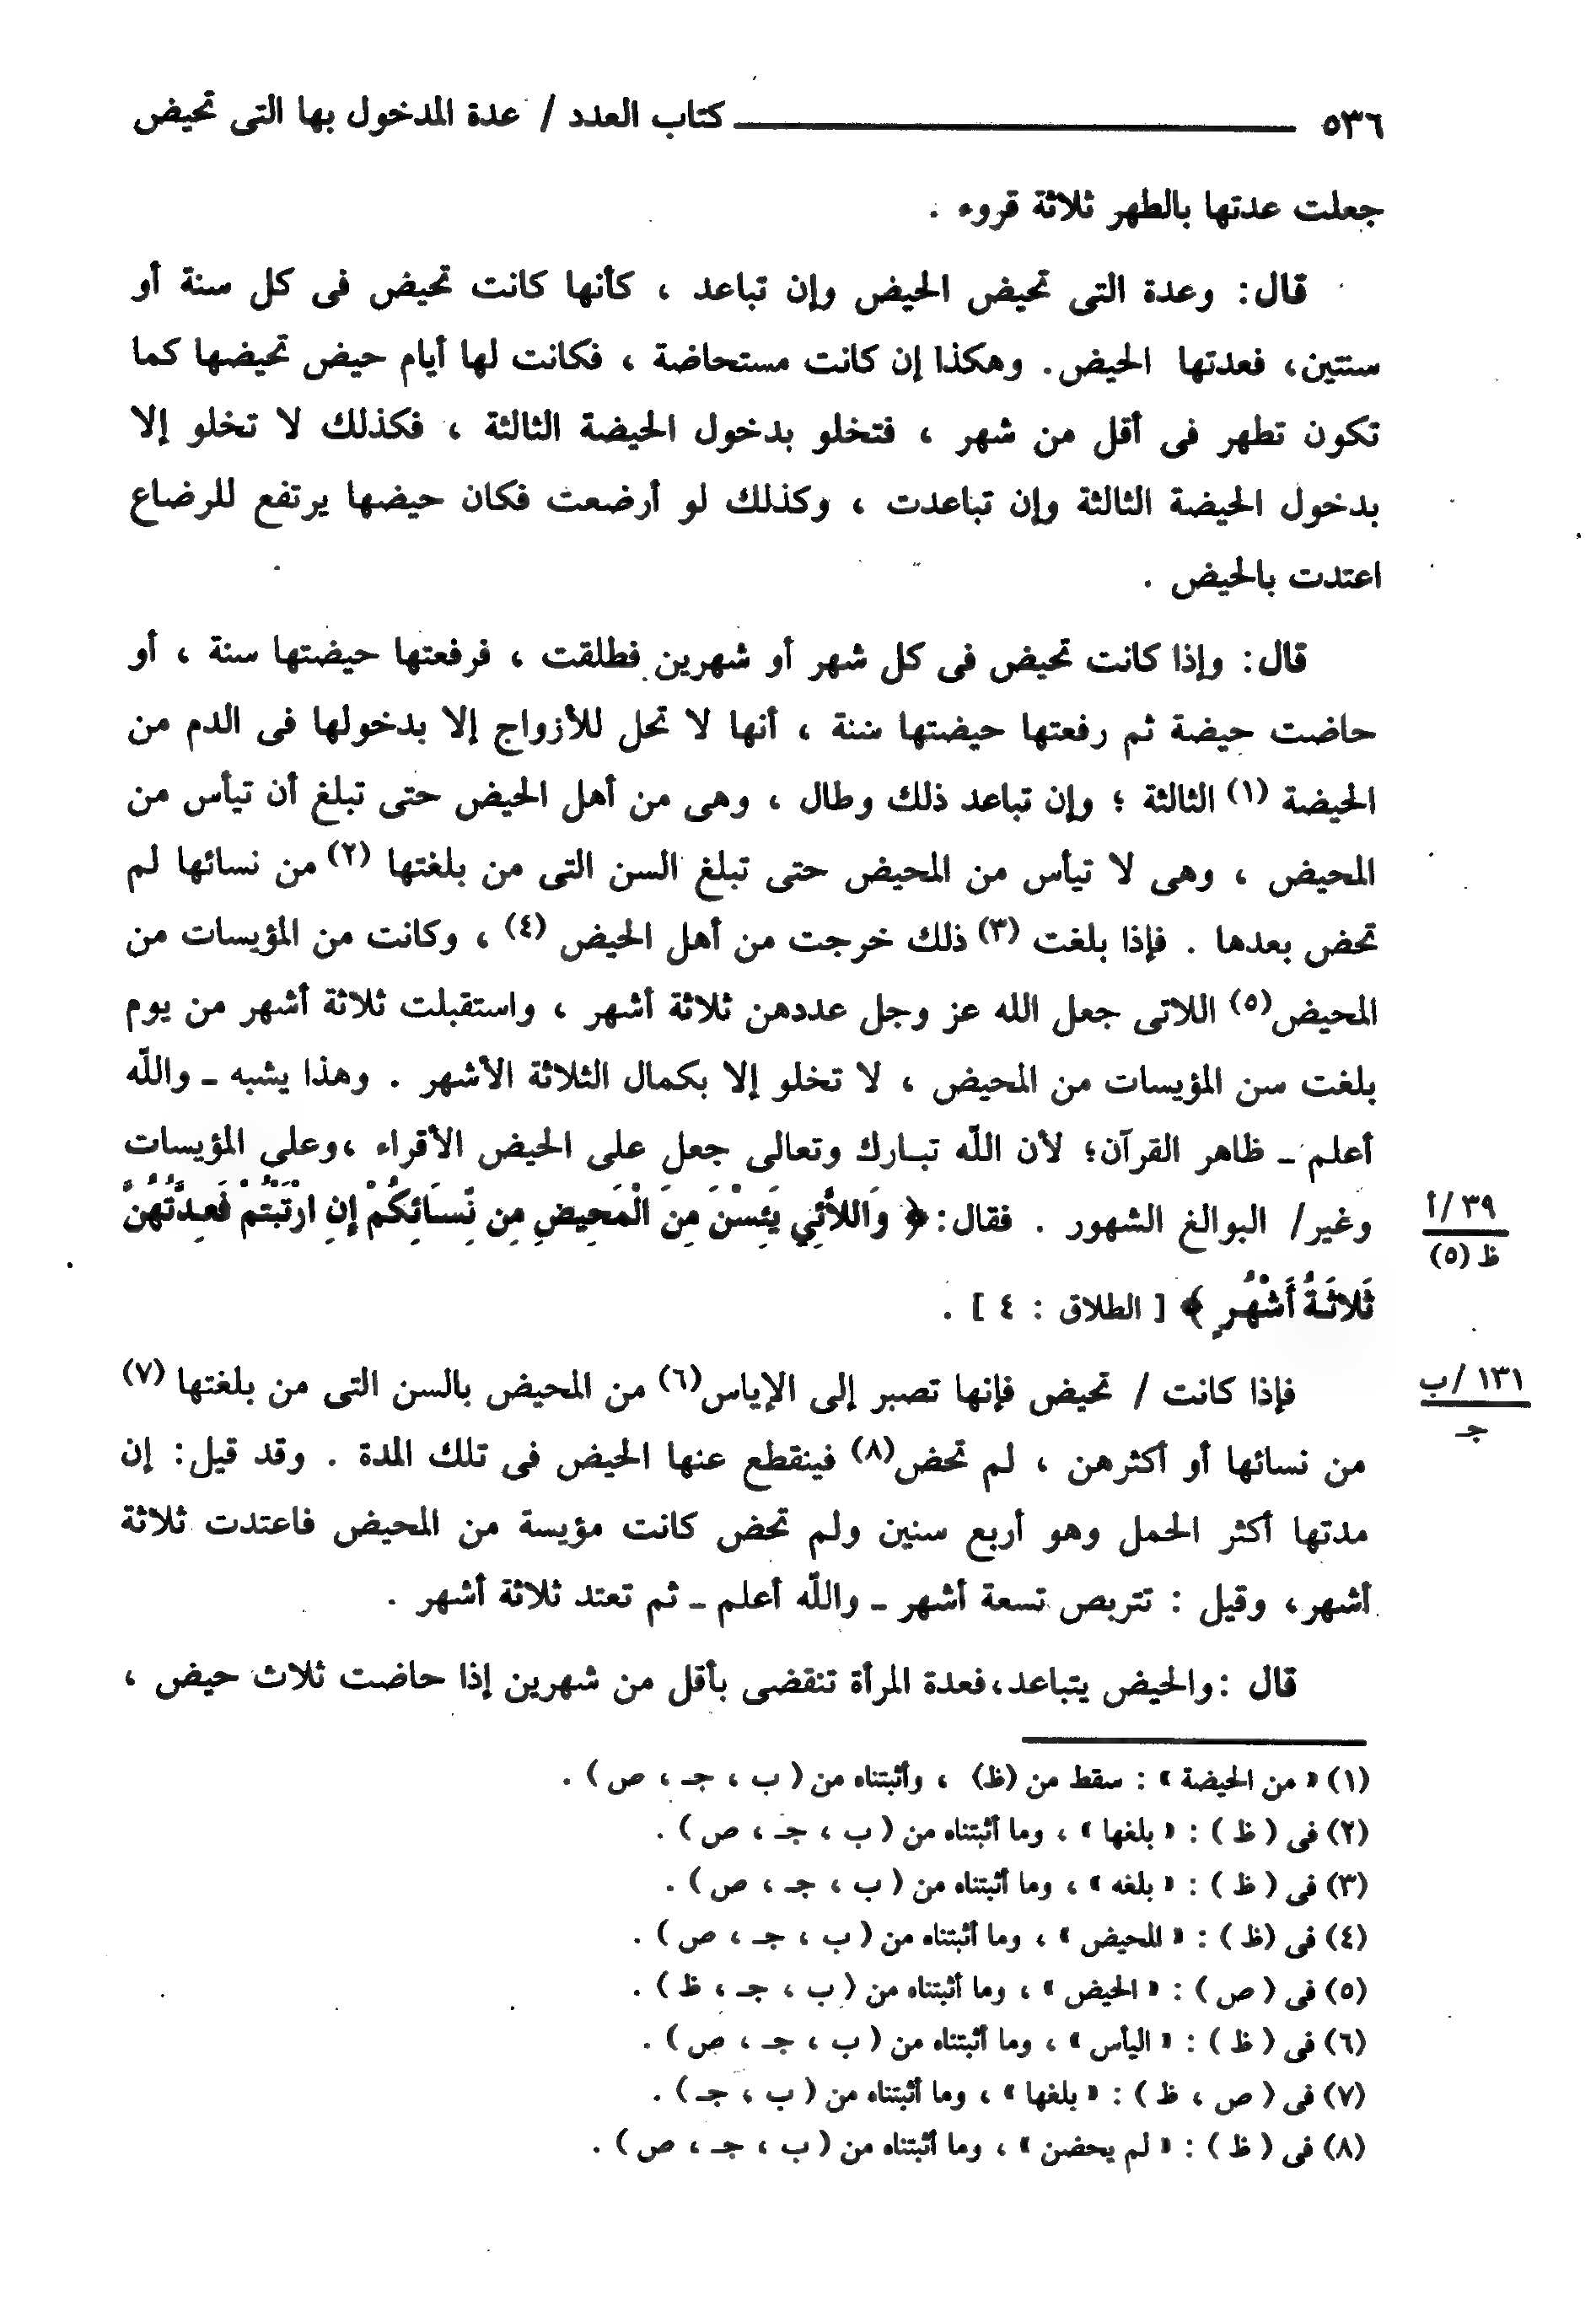 ٥٣٦ كتاب العدد / عدة المدخول بها التى تحيض
جعلت عدتها بالطهر ثلاثة قروء .
قال: وعدة التى تحيض الحيض وإن تباعد ، كأنها كانت تحيض فى كل سنة أو
سنتين، فعدتها الحيض. وهكذا إن كانت مستحاضة ، فكانت لها أيام حيض تحيضها كما
تكون تطهر فى أقل من شهر ، فتخلو بدخول الحيضة الثالثة ، فكذلك لا تخلو إلا
بدخول الحيضة الثالثة وإن تباعدت ، وكذلك لو أرضعت فكان حيضها يرتفع للرضاع
اعتدت بالحيض .
قال: وإذا كانت تحيض فى كل شهر أو شهرين فطلقت ، فرفعتها حيضتها سنة ، أو
حاضت حيضة ثم رفعتها حيضتها سنة ، أنها لا تحل للأزواج إلا بدخولها فى الدم من
الحيضة (١) الثالثة ؛ وإن تباعد ذلك وطال ، وهى من أهل الحيض حتى تبلغ أن تيأس من
المحيض ، وهى لا تيأس من المحيض حتى تبلغ السن التى من بلغتها (٢) من نسائها لم
تحض بعدها . فإذا بلغت (٣) ذلك خرجت من أهل الحيض (٤) ، وكانت من المؤيسات من
المحيض(٥) اللاتى جعل الله عز وجل عددهن ثلاثة أشهر ، واستقبلت ثلاثة أشهر من يوم
بلغت سن المؤيسات من المحيض ، لا تخلو إلا بكمال الثلاثة الأشهر . وهذا يشبه ـ واللّه
أعلم ـ ظاهر القرآن؛ لأن اللّه تبارك وتعالى جعل على الحيض الأقراء ،وعلى المؤيسات
وغير/ البوالغ الشهور . فقال:﴿ وَاللاَّئِي يَئِسْنَ مِنَ الْمَحِيضِ مِن نِّسَائِكُمْ إِنِ ارْتَبْتُمْ فَعِدَّتُهُنَّ
٣٩ /أ
ظ (٥)
ثَلاثَةُ أَشْهُرٍ ﴾ [ الطلاق : ٤ ] .
فإذا كانت / تحيض فإنها تصبر إلى الإياس(٦) من المحيض بالسن التى من بلغتها (٧)
١٣١ /ب
جـ
من نسائها أو أكثرهن ، لم تحض(٨) فينقطع عنها الحيض فى تلك المدة . وقد قيل: إن
مدتها أكثر الحمل وهو أربع سنين ولم تحض كانت مؤيسة من المحيض فاعتدت ثلاثة
أشهر، وقيل : تتربص تسعة أشهر ـ واللّه أعلم ـ ثم تعتد ثلاثة أشهر .
قال :والحيض يتباعد،فعدة المرأة تنقضى بأقل من شهرين إذا حاضت ثلاث حيض ،
(١) « من الحيضة » : سقط من (ظ) ، وأثبتناه من ( ب ، جـ ، ص ) .
(٢) فى ( ظ ) : « بلغها » ، وما أثبتناه من ( ب ، جـ ، ص ) .
(٣) فى ( ظ ) : « بلغه » ، وما أثبتناه من ( ب ، جـ ، ص ) .
(٤) فى (ظ ) : « المحيض » ، وما أثبتناه من ( ب ، جـ ، ص ) .
(٥) فى ( ص ) : « الحيض » ، وما أثبتناه من ( ب ، جـ ، ظ ) .
(٦) فى ( ظ ) : « اليأس » ، وما أثبتناه من ( ب ، جـ ، ص ) .
(٧) فى ( ص ، ظ ) : « بلغها » ، وما أثبتناه من ( ب ، جـ ) .
(٨) فى ( ظ ) : « لم يحضن » ، وما أثبتناه من ( ب ، جـ ، ص ) .